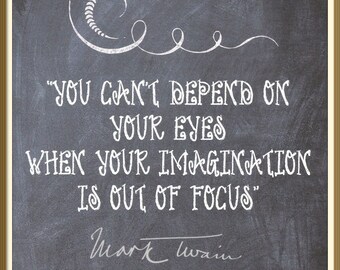 "YOU CAN'T DEPEND ON
YOUR EYES
WHEN YOUR IMAGINATION
IS OUT OF FOCUS"
Mark Twain